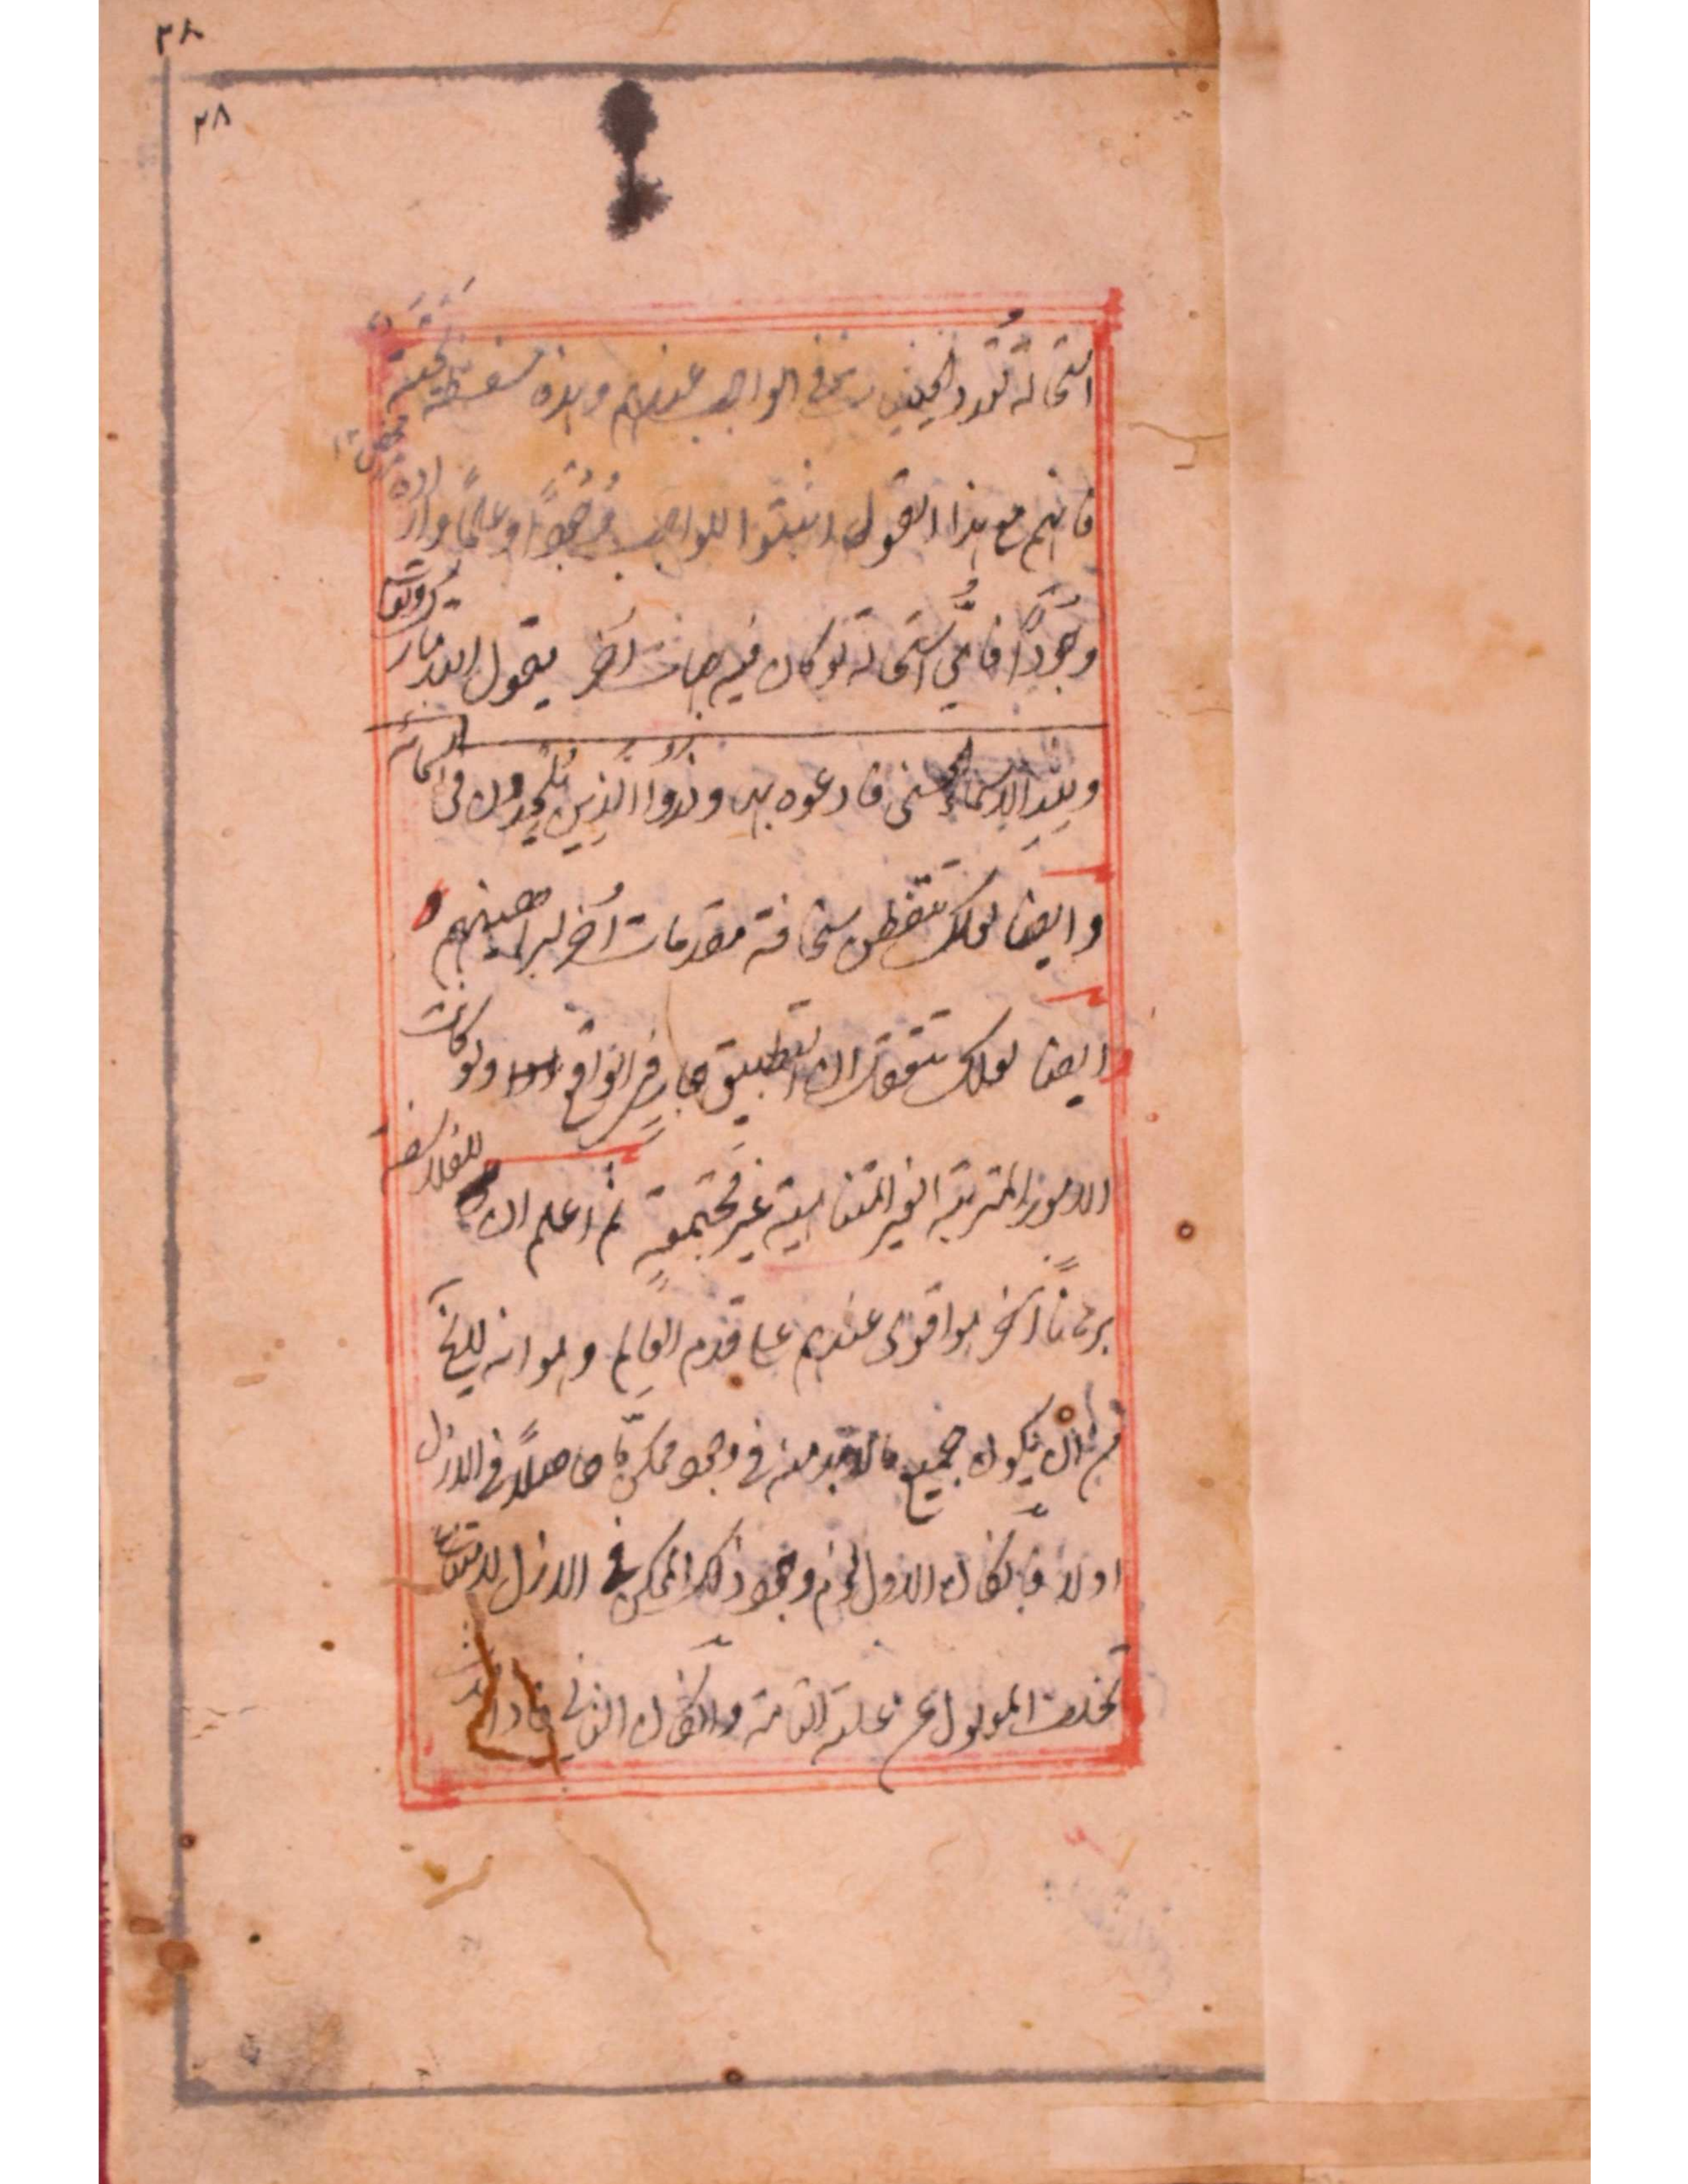 ٣٨
٢٨
استحالة تعدد الجهتين في الواجب عندهم وهذه سفسطة
فانهم مع هذا القول اثبتوا للواجب وجوداً وعلماً وارادة
وجوداً فاىُّ استحالة لو كان فيه جهات اُخر يقول الله تبارك وتعالى
ولِلّهِ الاسماء الحسنى فادعوه بها وذَرُوا الّذِين يُلْحِدون فى اسمائه
وايضا لعلك تتفطن سخافة مقدمات اُخر لبراهينهم و
ايضا لعلك تتفطن ان التطبيق جارٍ فى الواقع ولو كانت
الامور المترتبة الغير المتناهية غير مجتمعةٍ ثم اعلم ان للفلاسفة
برهاناً آخر هو اقوى عندهم على قدم العالم وهو انه لا يخ
من ان يكون جميع ما لا بد منه فى وجود ممكنٍ مّا حاصلاً فى الازل
اولا فان كان الاول لزم وجود ذلك الممكن فى الازل لامتناع
تخلف المعلول عن علته التامة وان كان الثانى فاذا